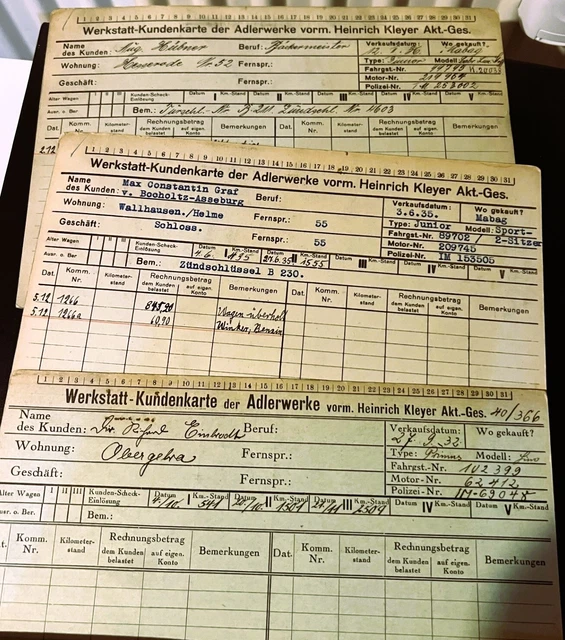 Werkstatt-Kundenkarte der Adlerwerke vorm. Heinrich Kleyer Akt.-Ges.
Name des Kunden: Aug. Hübner Beruf: Bäckermeister Verkaufsdatum: Wo gekauft? Mabag
Wohnung: Nr. 52 Fernspr.: Type: Junior Modell:
Geschäft: Fernspr.: Fahrgst-Nr.
Motor-Nr.
Polizei-Nr. IM
Alter Wagen I II III Kunden-Scheck-Einlösung Datum Km.-Stand Datum Km.-Stand Datum Km.-Stand
Ausr. o. Ber. Bem.: Zündschl. Nr 4603
Dat. Komm. Nr. Kilometer-stand Rechnungsbetrag dem Kunden belastet auf eigen. Konto Bemerkungen Dat. Komm. Nr. Kilometer-stand Rechnungsbetrag dem Kunden belastet auf eigen. Konto Bemerkungen
1 2 3 4 5 6 7 8 9 10 11 12 13 14 15 16 17 18 19 20 21 22 23 24 25 26 27 28 29 30 31
Werkstatt-Kundenkarte der Adlerwerke vorm. Heinrich Kleyer Akt.-Ges.
Name des Kunden: Max Constantin Graf v. Bocholtz-Asseburg Beruf: Verkaufsdatum: 3.6.35. Wo gekauft? Mabag
Wohnung: Wallhausen./Helme Fernspr.: 55 Type: Junior Modell: Sport-2-Sitzer
Geschäft: Schloss. Fernspr.: 55 Fahrgst-Nr. 89702 /
Motor-Nr. 209745
Polizei-Nr. IM 153505
Alter Wagen I II III Kunden-Scheck-Einlösung Datum 4.6. I Km.-Stand 435 Datum 27.6.35 II Km.-Stand 1555 Datum III Km.-Stand Datum IV Km.-Stand Datum V Km.-Stand
Ausr. o. Ber. Bem.: Zündschlüssel B 230.
Dat. Komm. Nr. Kilometer-stand Rechnungsbetrag dem Kunden belastet auf eigen. Konto Bemerkungen Dat. Komm. Nr. Kilometer-stand Rechnungsbetrag dem Kunden belastet auf eigen. Konto Bemerkungen
5.12 1266 Wagen überholt
5.12 1266a 60,90 Winker, Benzin
1 2 3 4 5 6 7 8 9 10 11 12 13 14 15 16 17 18 19 20 21 22 23 24 25 26 27 28 29 30 31
Werkstatt-Kundenkarte der Adlerwerke vorm. Heinrich Kleyer Akt.-Ges. 40/366
Name des Kunden: Dr. Embrodt Beruf: Verkaufsdatum: 27.9.32. Wo gekauft?
Wohnung: Obergebra Fernspr.: Type: Primus Modell: Limo
Geschäft: Fernspr.: Fahrgst-Nr. 102399
Motor-Nr. 62412
Polizei-Nr. IM-69048
Alter Wagen I II III Kunden-Scheck-Einlösung Datum 4/10. I Km.-Stand 541 Datum II Km.-Stand 1501 Datum III Km.-Stand 2509 Datum IV Km.-Stand Datum V Km.-Stand
Ausr. o. Ber. Bem.:
Dat. Komm. Nr. Kilometer-stand Rechnungsbetrag dem Kunden belastet auf eigen. Konto Bemerkungen Dat. Komm. Nr. Kilometer-stand Rechnungsbetrag dem Kunden belastet auf eigen. Konto Bemerkungen